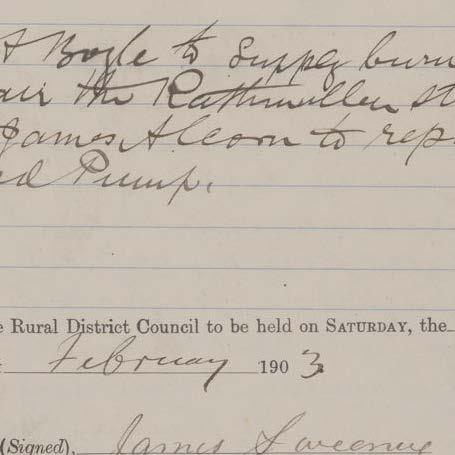 Boyle to supply burn
air the Rathmullen st
James Alcorn to rep
ed Pump.
e Rural District Council to be held on SATURDAY, the
February 1903
(Signed), James Sweeney